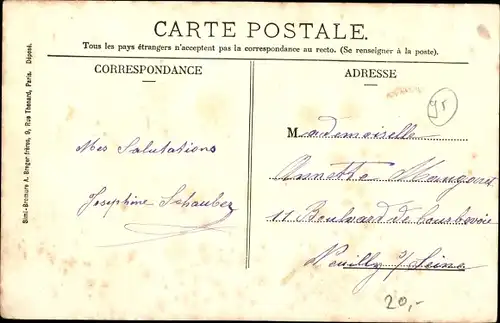 CARTE POSTALE.
Tous les pays étrangers n'acceptent pas la correspondance au recto. (Se renseigner à la poste).
CORRESPONDANCE
ADRESSE
Simi-Bromure A. Breger frères, 9, Rue Thenard, Paris. Déposé.
Mes Salutations
Josephine Schauber
Mademoiselle
Annette
11 Boulevard de Courbevoie
Neuilly s/ Seine
20,-